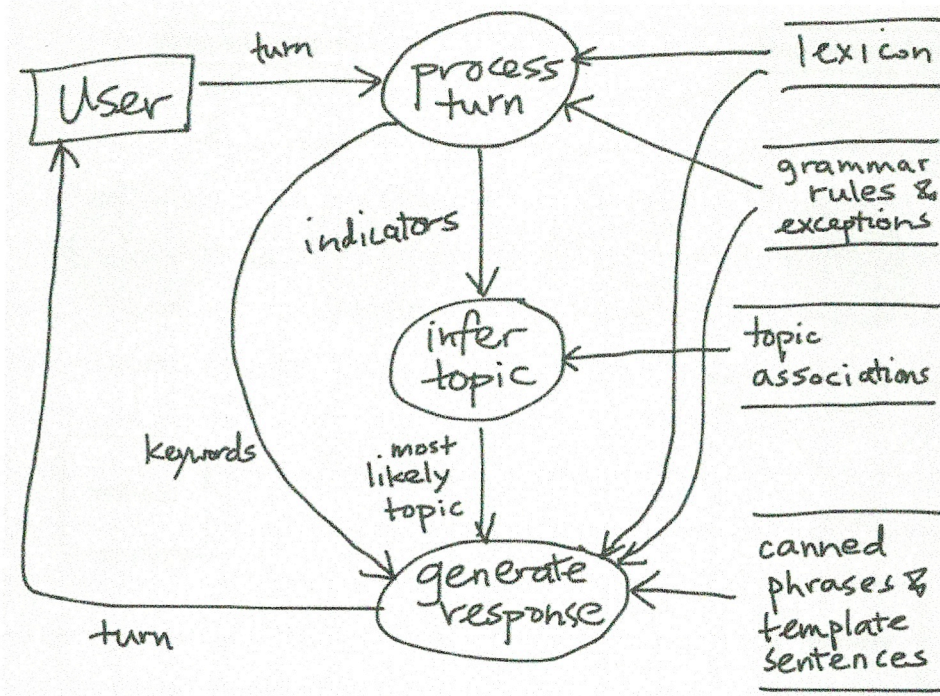 turn
User
process
turn
lexicon
grammar
rules &
exceptions
indicators
infer
topic
topic
associations
keywords
most
likely
topic
generate
response
canned
phrases &
template
sentences
turn